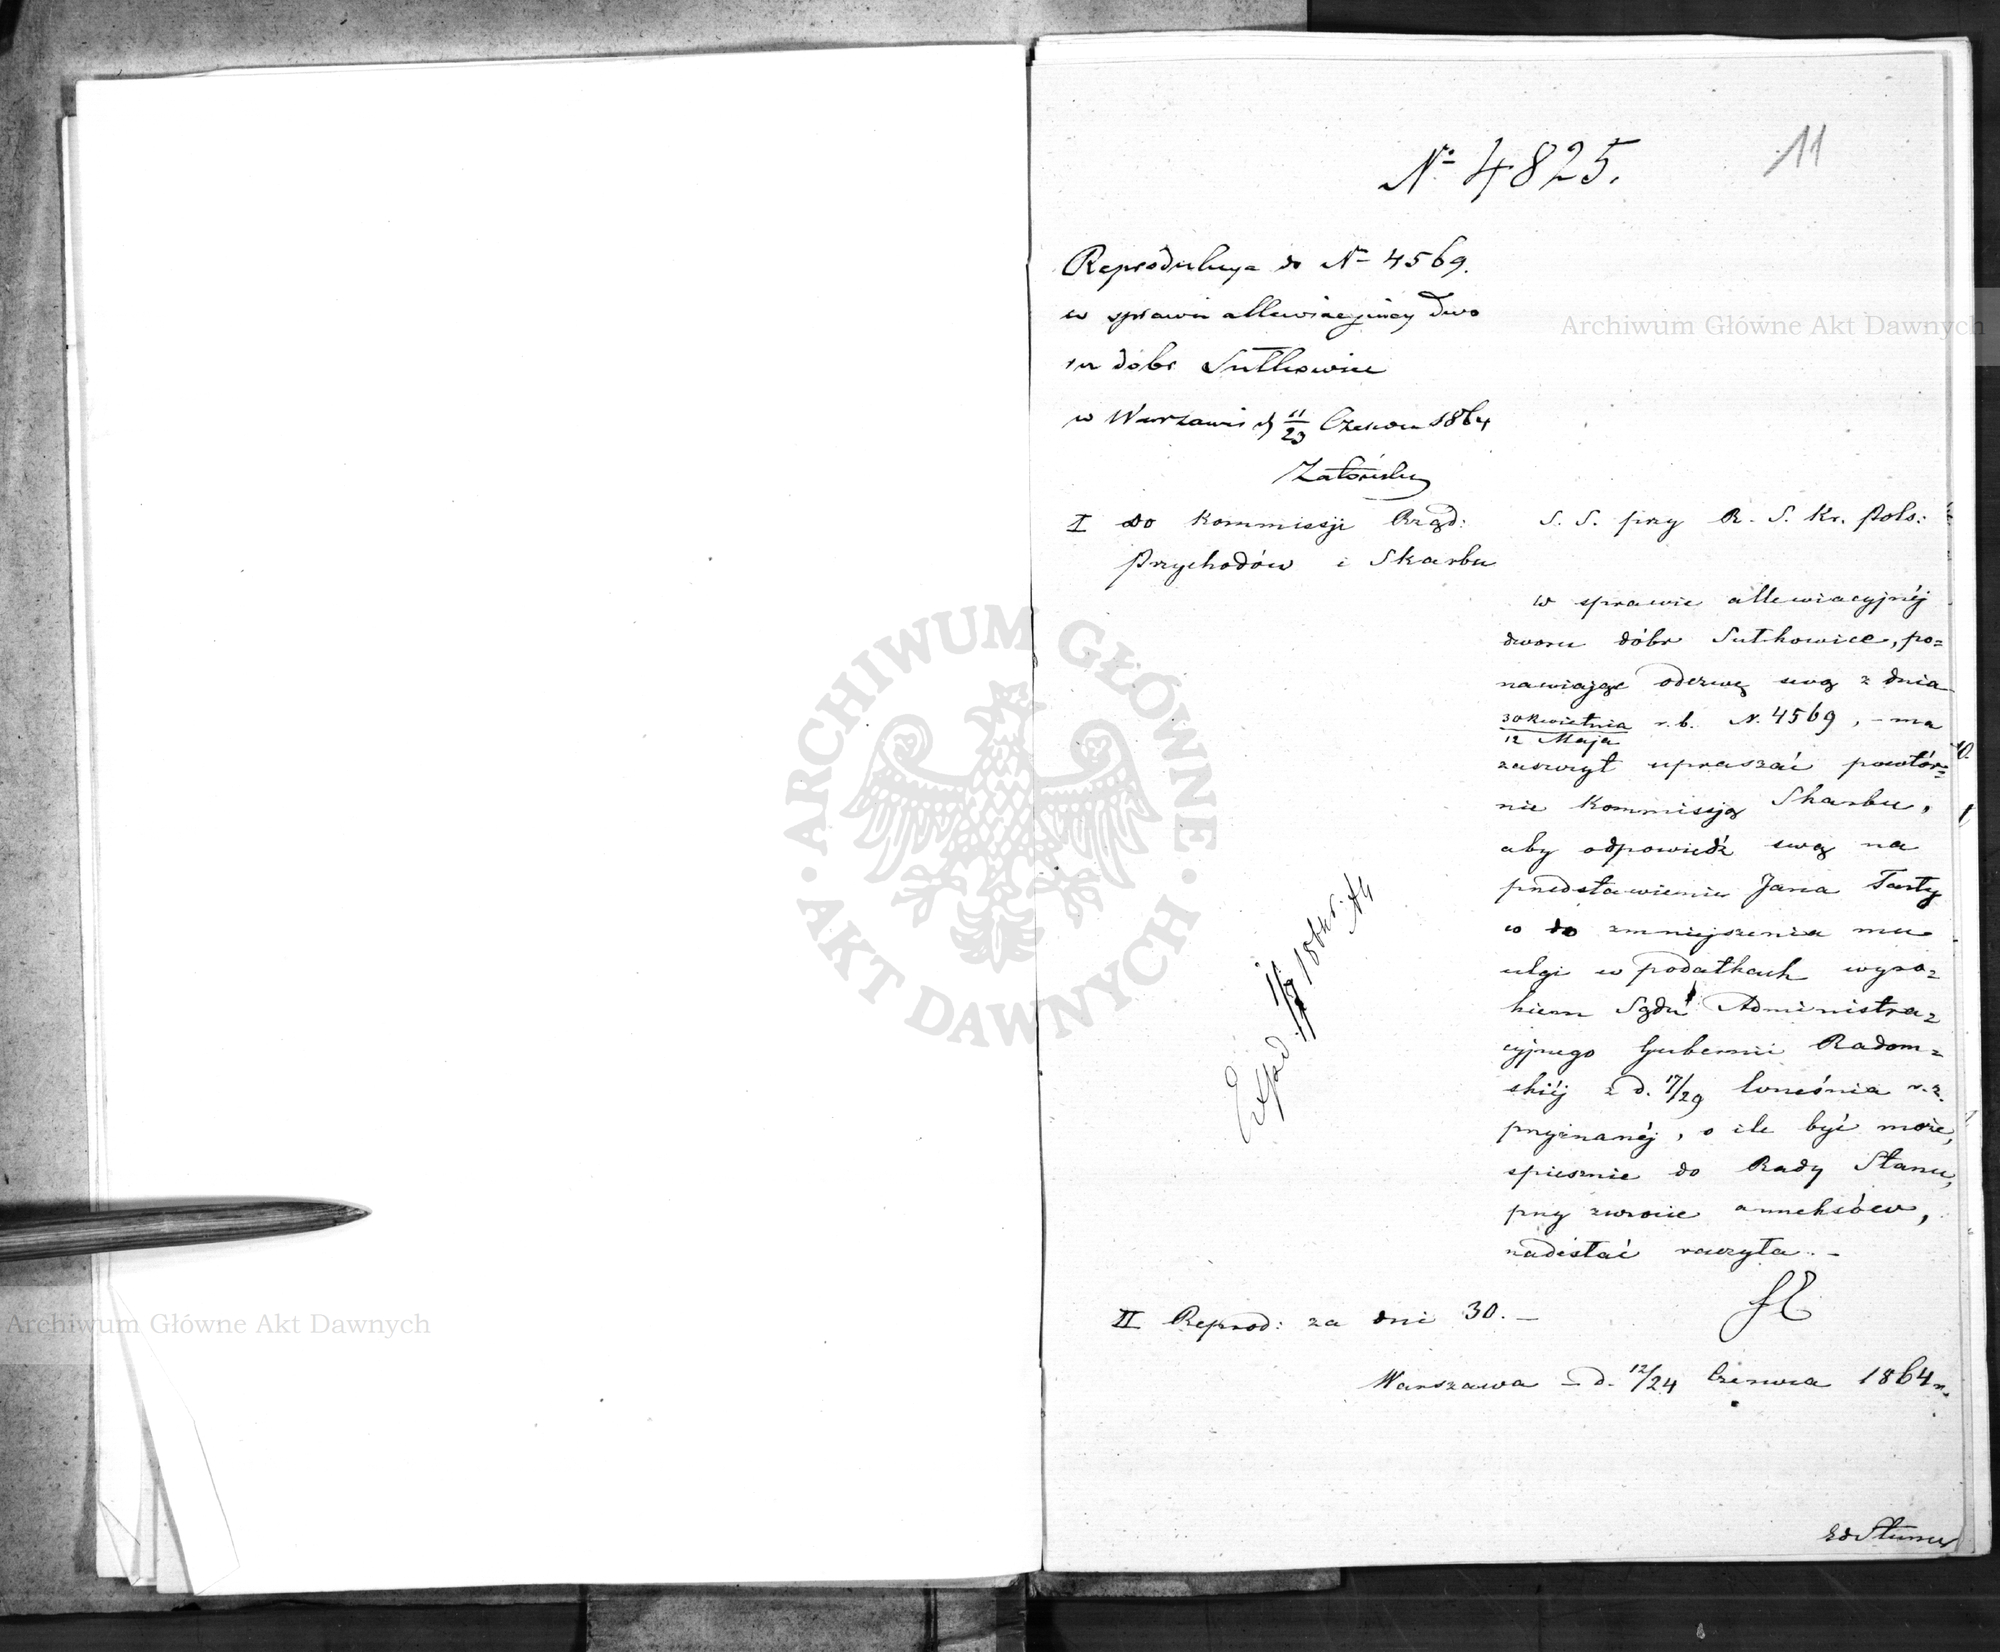 № 4825.
11
Reprodukcya do № 4569.
w sprawie allewiacyjnéj dwo
ru dóbr Sutkowice
w Warszawie d 11/23 Czerwca 1864
I do Kommissji Rząd:
Przychodów i Skarbu
S. S. przy R. S. Kr. Pols:
w sprawie allewiacyjnéj
dworu dóbr Sutkowice, po=
nawiając odezwę swą z dnia
30 Kwietnia / 12 Maja r. b. N. 4569, – ma
zaszczyt upraszać powtór=
nie Kommissją Skarbu,
aby odpowiedź swą na
przedstawienie Jana Tarły
co do zmniejszenia mu
ulgi w podatkach wyro=
kiem Sądu Administra=
cyjnego Gubernii Radom=
skiéj z d. 17/29 Września r. z.
przyznanéj, o ile być może,
spiesznie do Rady Stanu,
przy zwrocie anneksów,
nadesłać raczyła. –
Exped.
II Reprod: za dni 30. –
Warszawa – d. 12/24 Czerwca 1864 r.
Archiwum Główne Akt Dawnych
Archiwum Główne Akt Dawnych
ARCHIWUM GŁÓWNE
AKT DAWNYCH